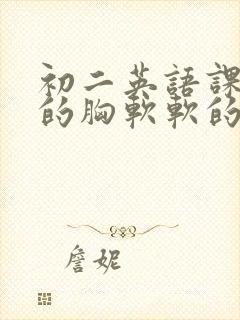 初二英語課
的胸軟軟的
詹妮